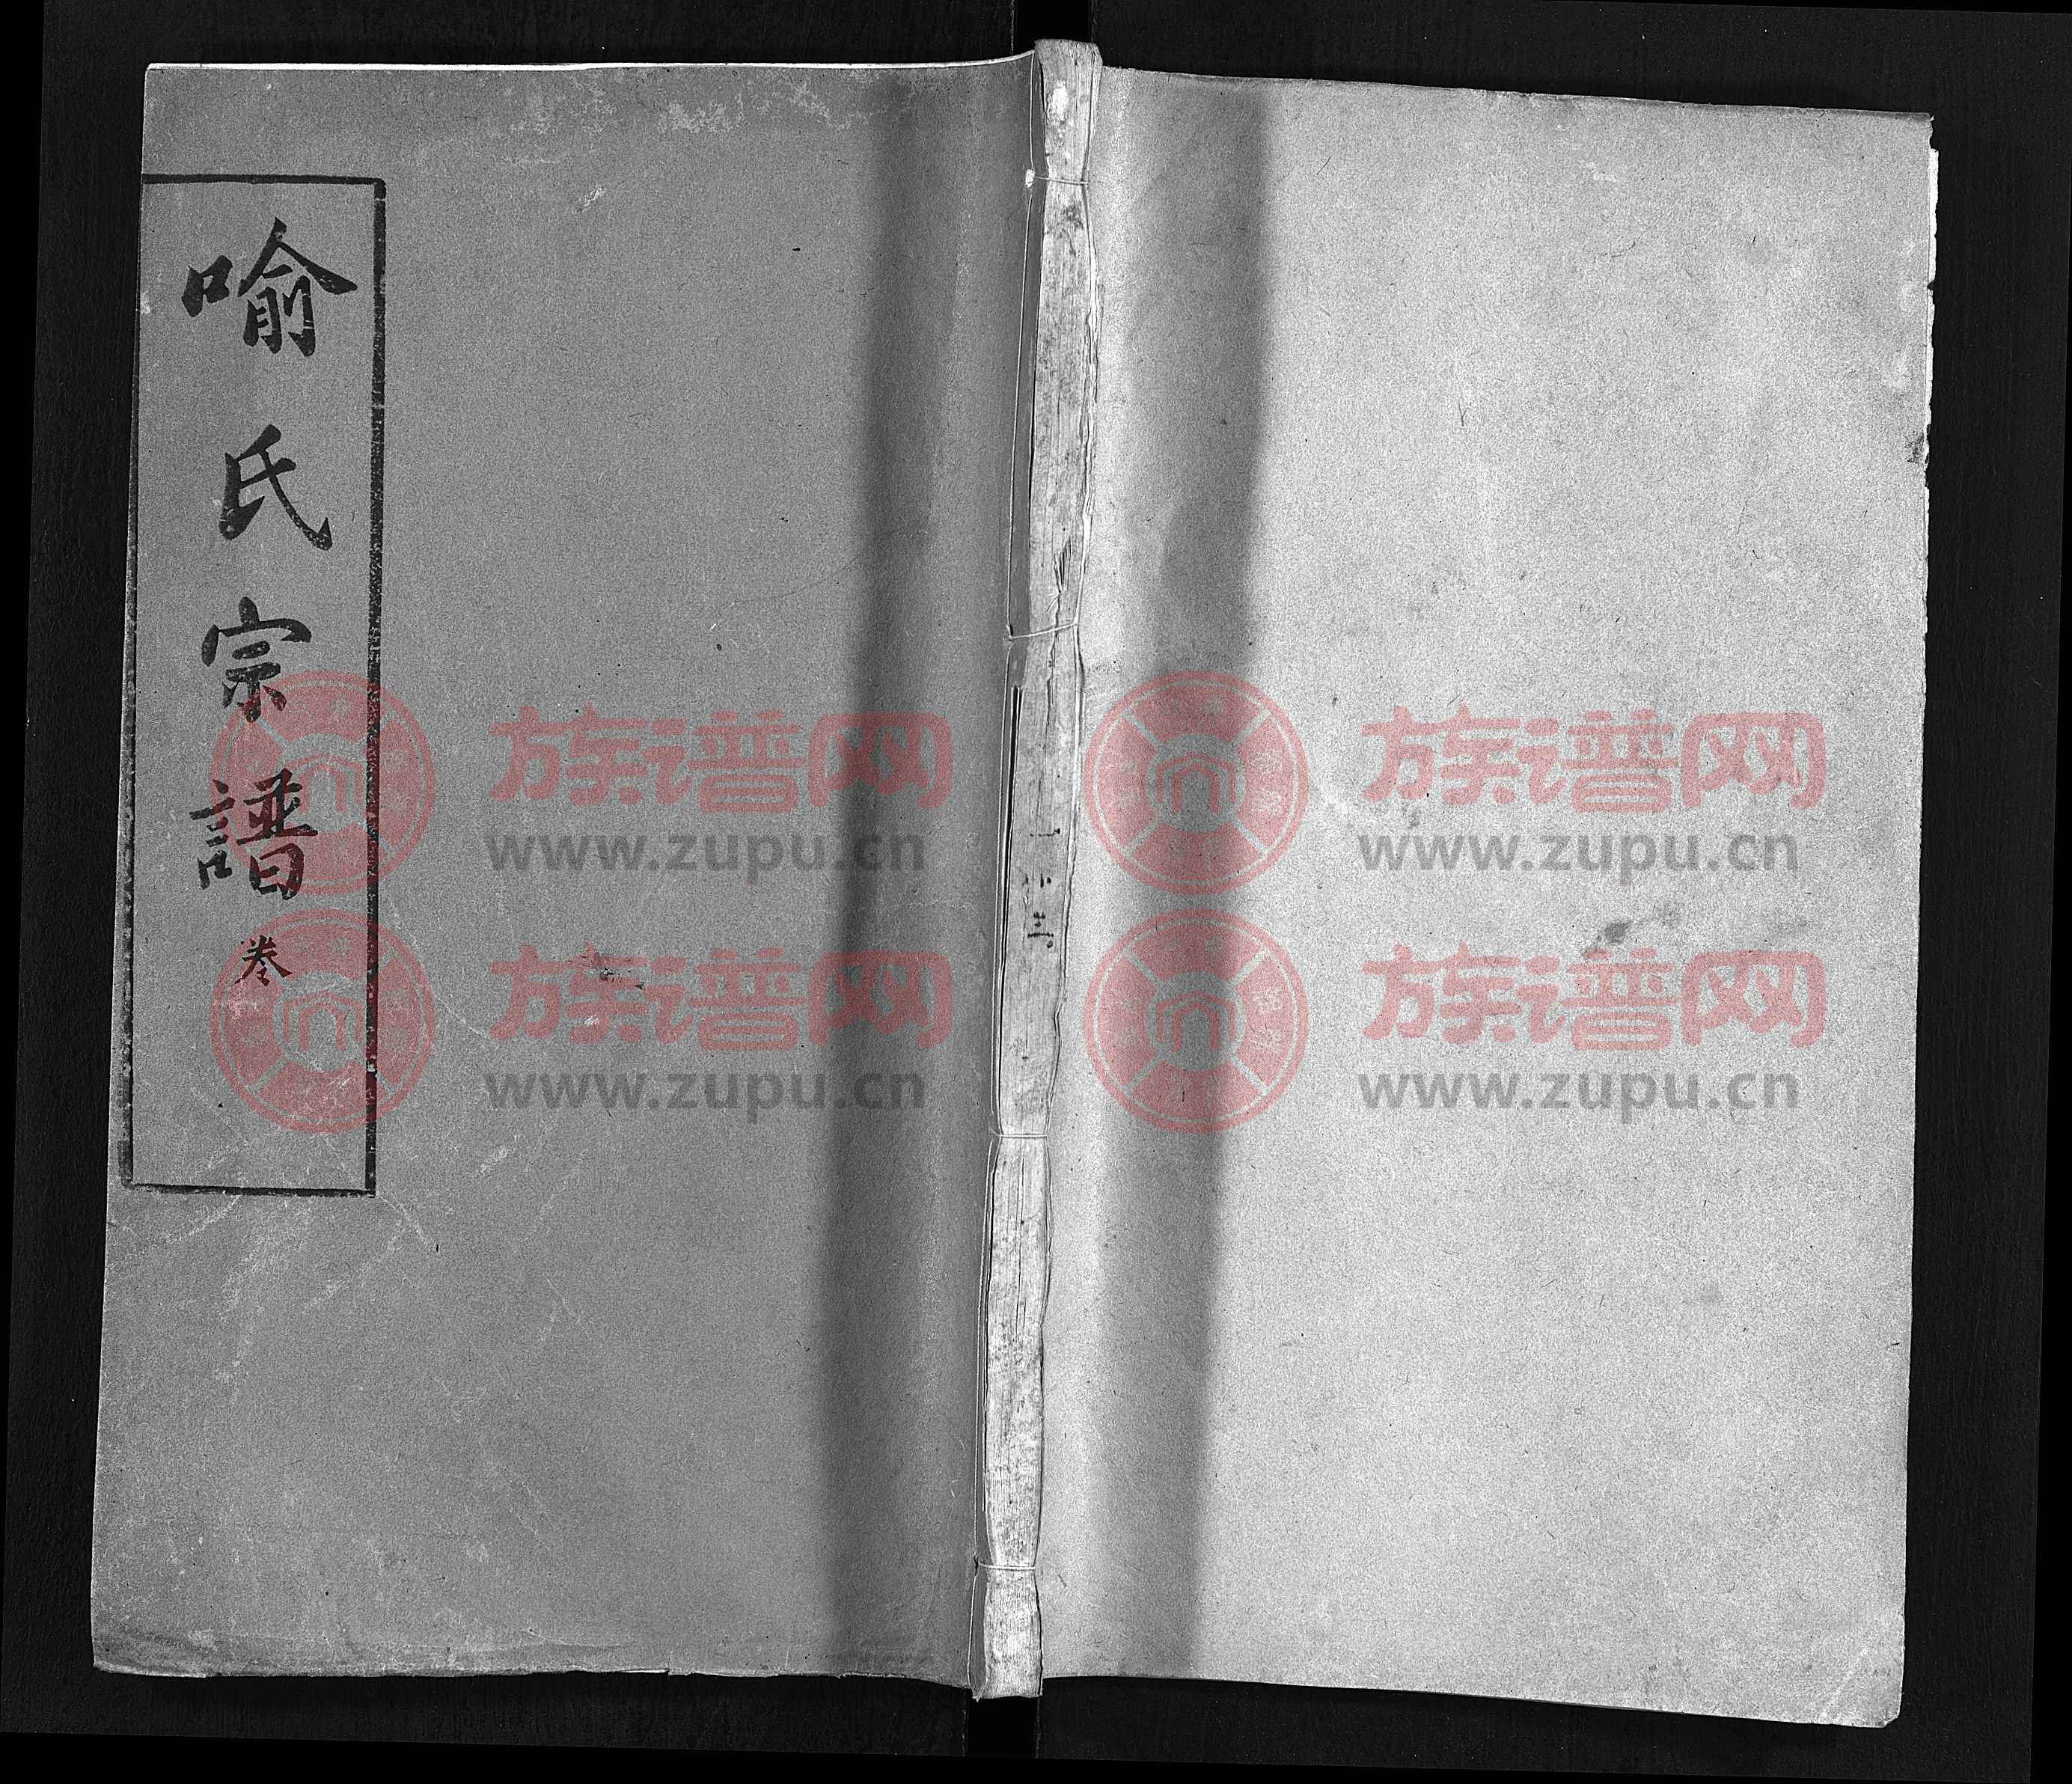 喻氏宗譜
卷
族谱网
www.zupu.cn
族谱网
www.zupu.cn
族谱网
www.zupu.cn
族谱网
www.zupu.cn